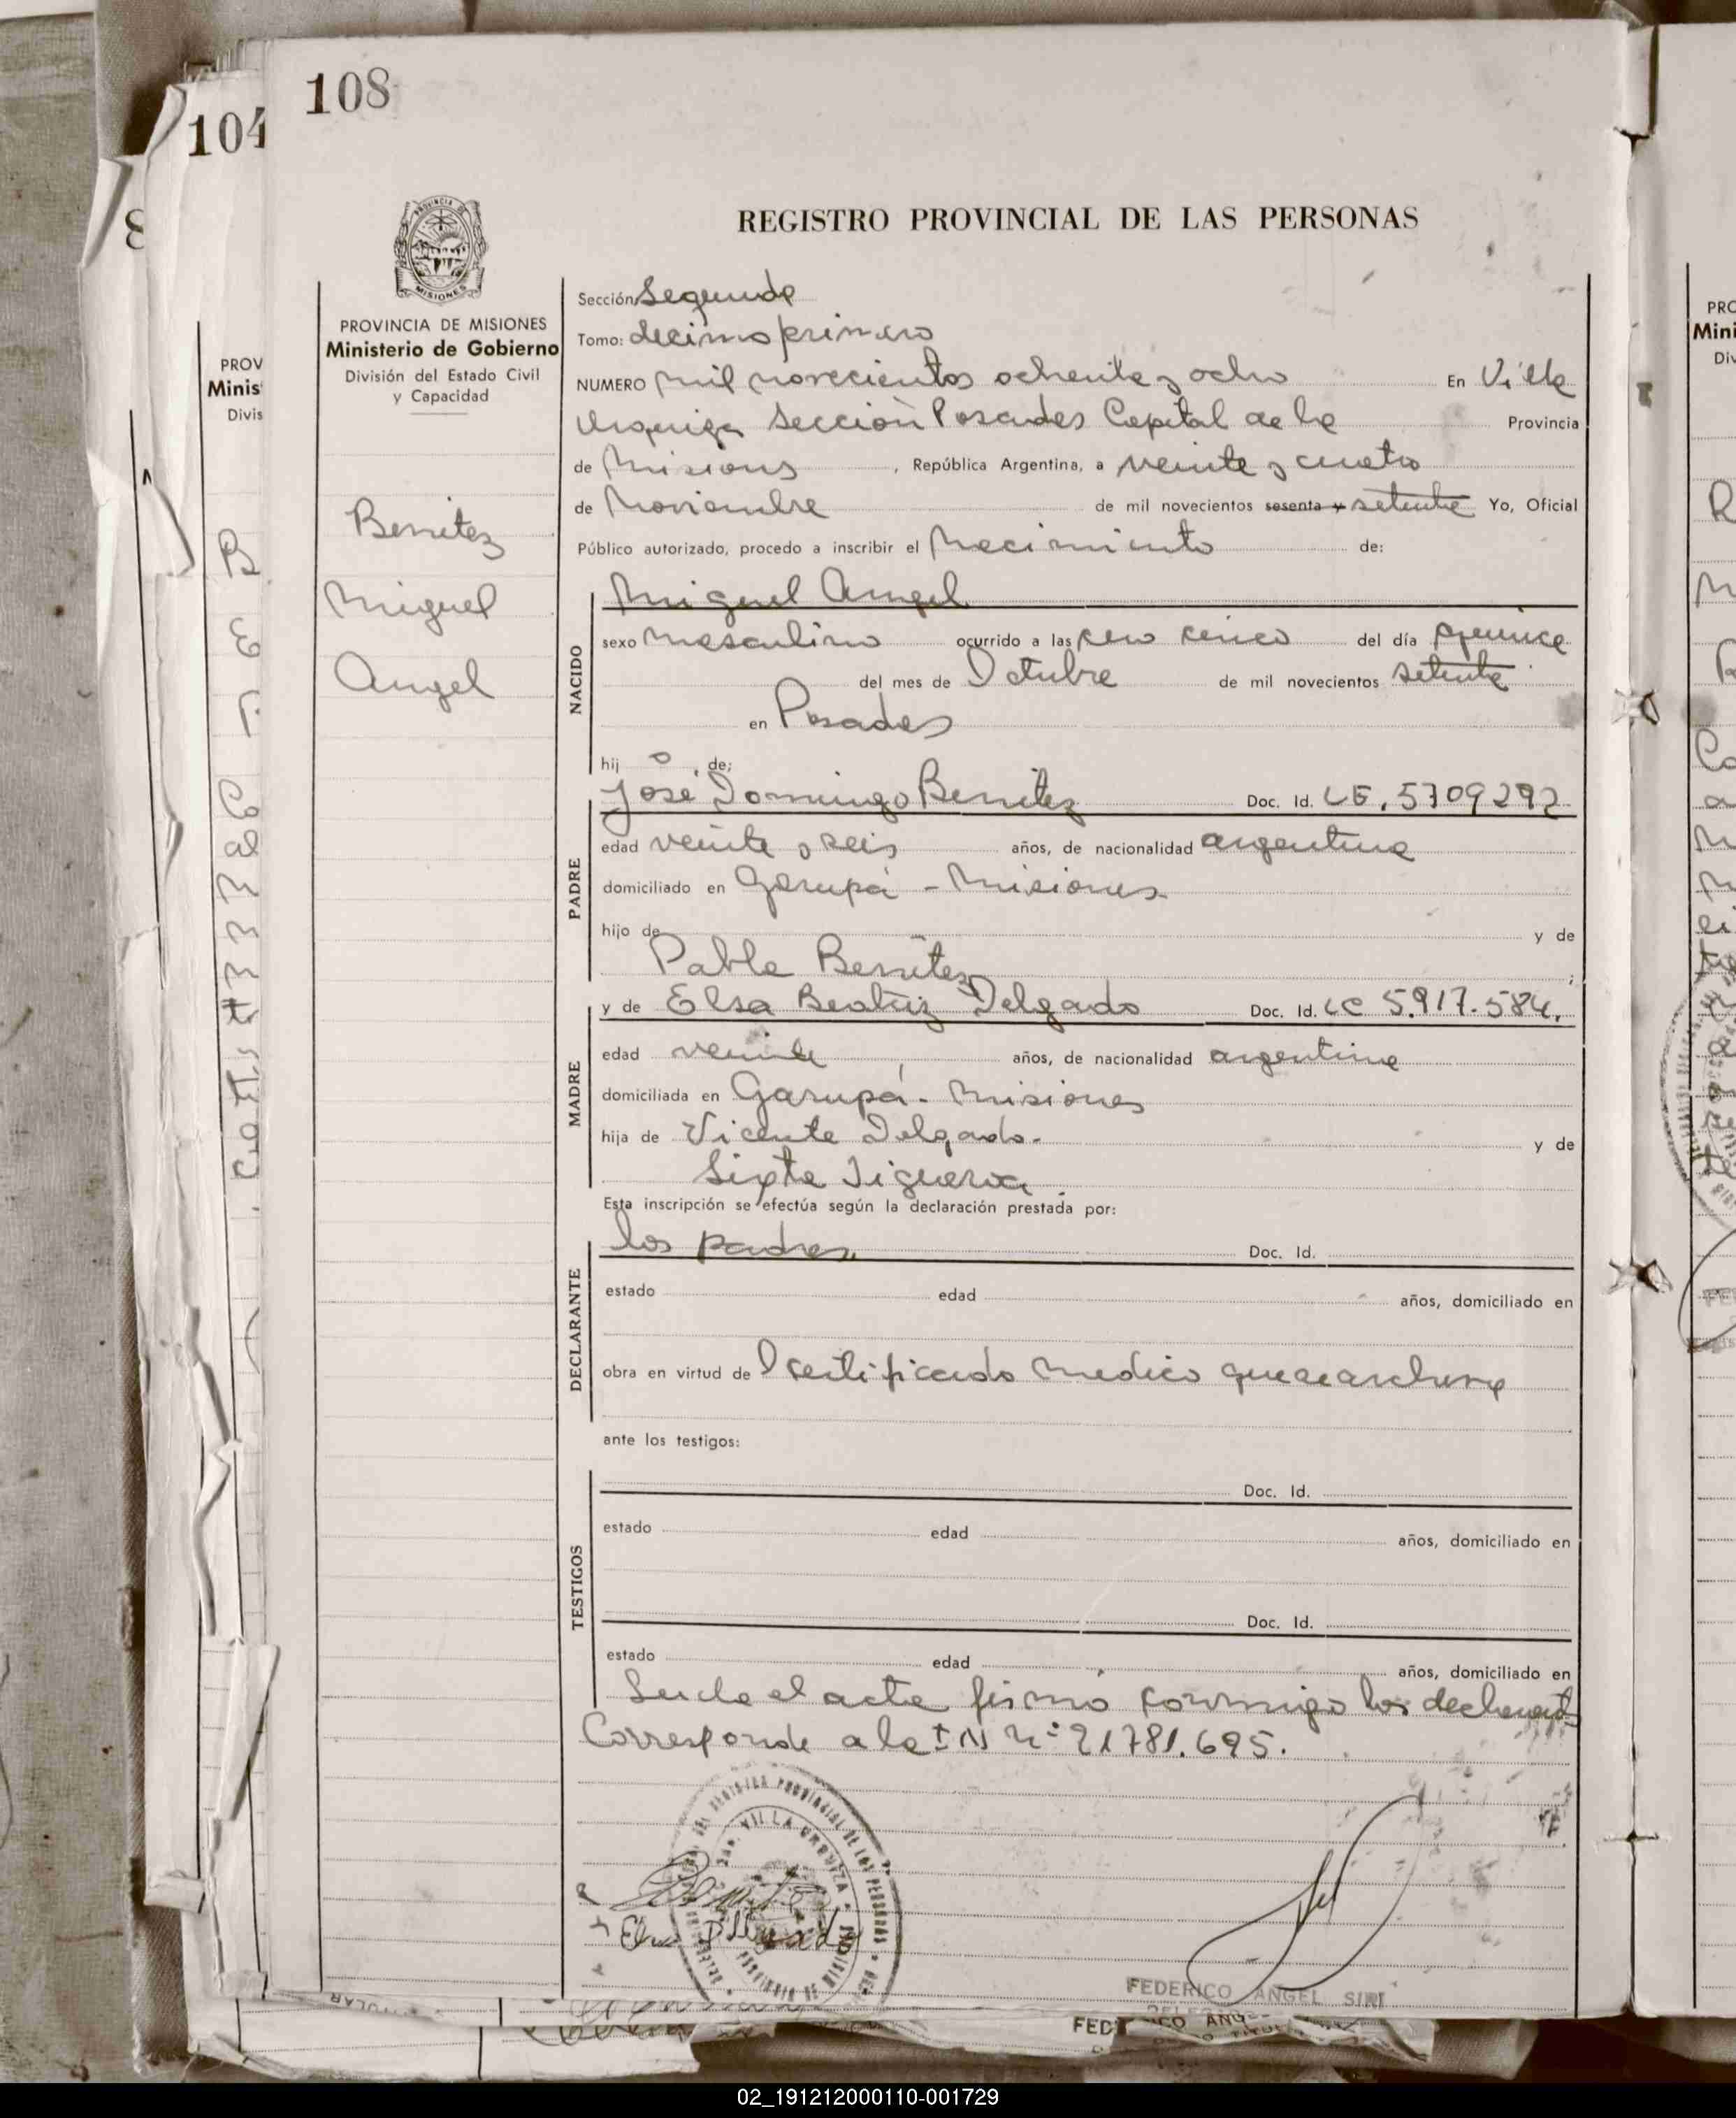 108
104
8
REGISTRO PROVINCIAL DE LAS PERSONAS
MISIONES
PROVINCIA DE MISIONES
Ministerio de Gobierno
División del Estado Civil
y Capacidad
Benitez
Miguel
Angel
Sección Segunda
Tomo: decimo primero
NUMERO mil novecientos ochenta y ocho En Villa
Urquiza Sección Posadas Capital de la Provincia
de Misiones , República Argentina, a veinte y cuatro
de Noviembre de mil novecientos sesenta y setenta Yo, Oficial
Público autorizado, procedo a inscribir el Nacimiento de:
NACIDO
Miguel Angel
sexo masculino ocurrido a las cero cinco del día quince
del mes de Octubre de mil novecientos setenta
en Posadas
hij o , de;
PADRE
José Domingo Benitez Doc. Id. LE. 5709292
edad veinte y seis años, de nacionalidad argentina
domiciliado en Garupá - Misiones
hijo de y de
Pabla Benitez ;
MADRE
y de Elsa Beatriz Delgado Doc. Id. LC 5.917.584.
edad veinte años, de nacionalidad argentina
domiciliada en Garupá - Misiones
hija de Vicente Delgado. y de
Sixta Figueroa.
Esta inscripción se efectúa según la declaración prestada por:
DECLARANTE
los padres. Doc. Id.
estado edad años, domiciliado en
obra en virtud de certificado medico que se archiva
ante los testigos:
TESTIGOS
Doc. Id.
estado edad años, domiciliado en
Doc. Id.
estado edad años, domiciliado en
el acta firmó conmigo los
Corresponde a la I N Nº 21781.695.
VILLA URQUIZA
Benitez
Elsa Delgado
FEDERICO ANGEL SIRI
02_191212000110-001729